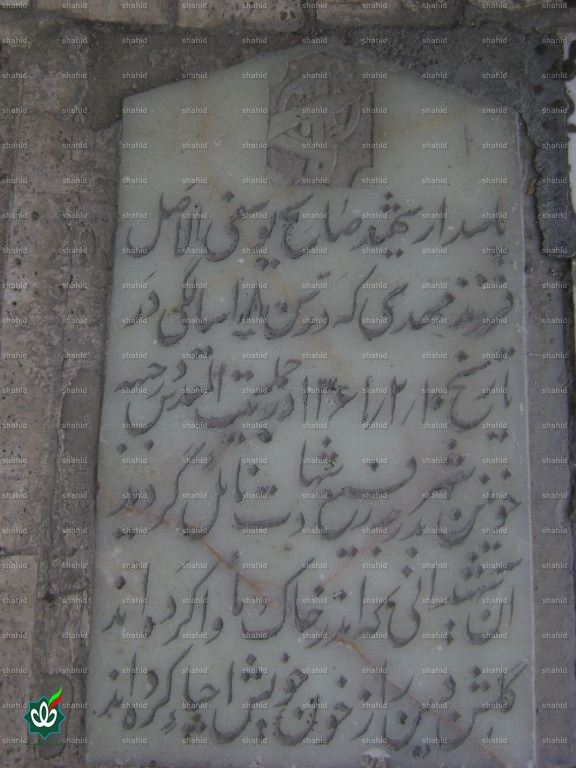 پاسدار شهید صالح یوسفی الاصل
فرزند مهدی که در سن ۱۸ سالگی در
تاریخ ۱۳۶۱/۲/۱۰ در حمله بیت المقدس جبهه
خونین شهر بدرجه رفیع شهادت نائل گردید
آن شهیدانی که اندر خاک ماوا کرده اند
گلشن دین را ز خون خویش احیاء کرده اند
shahid